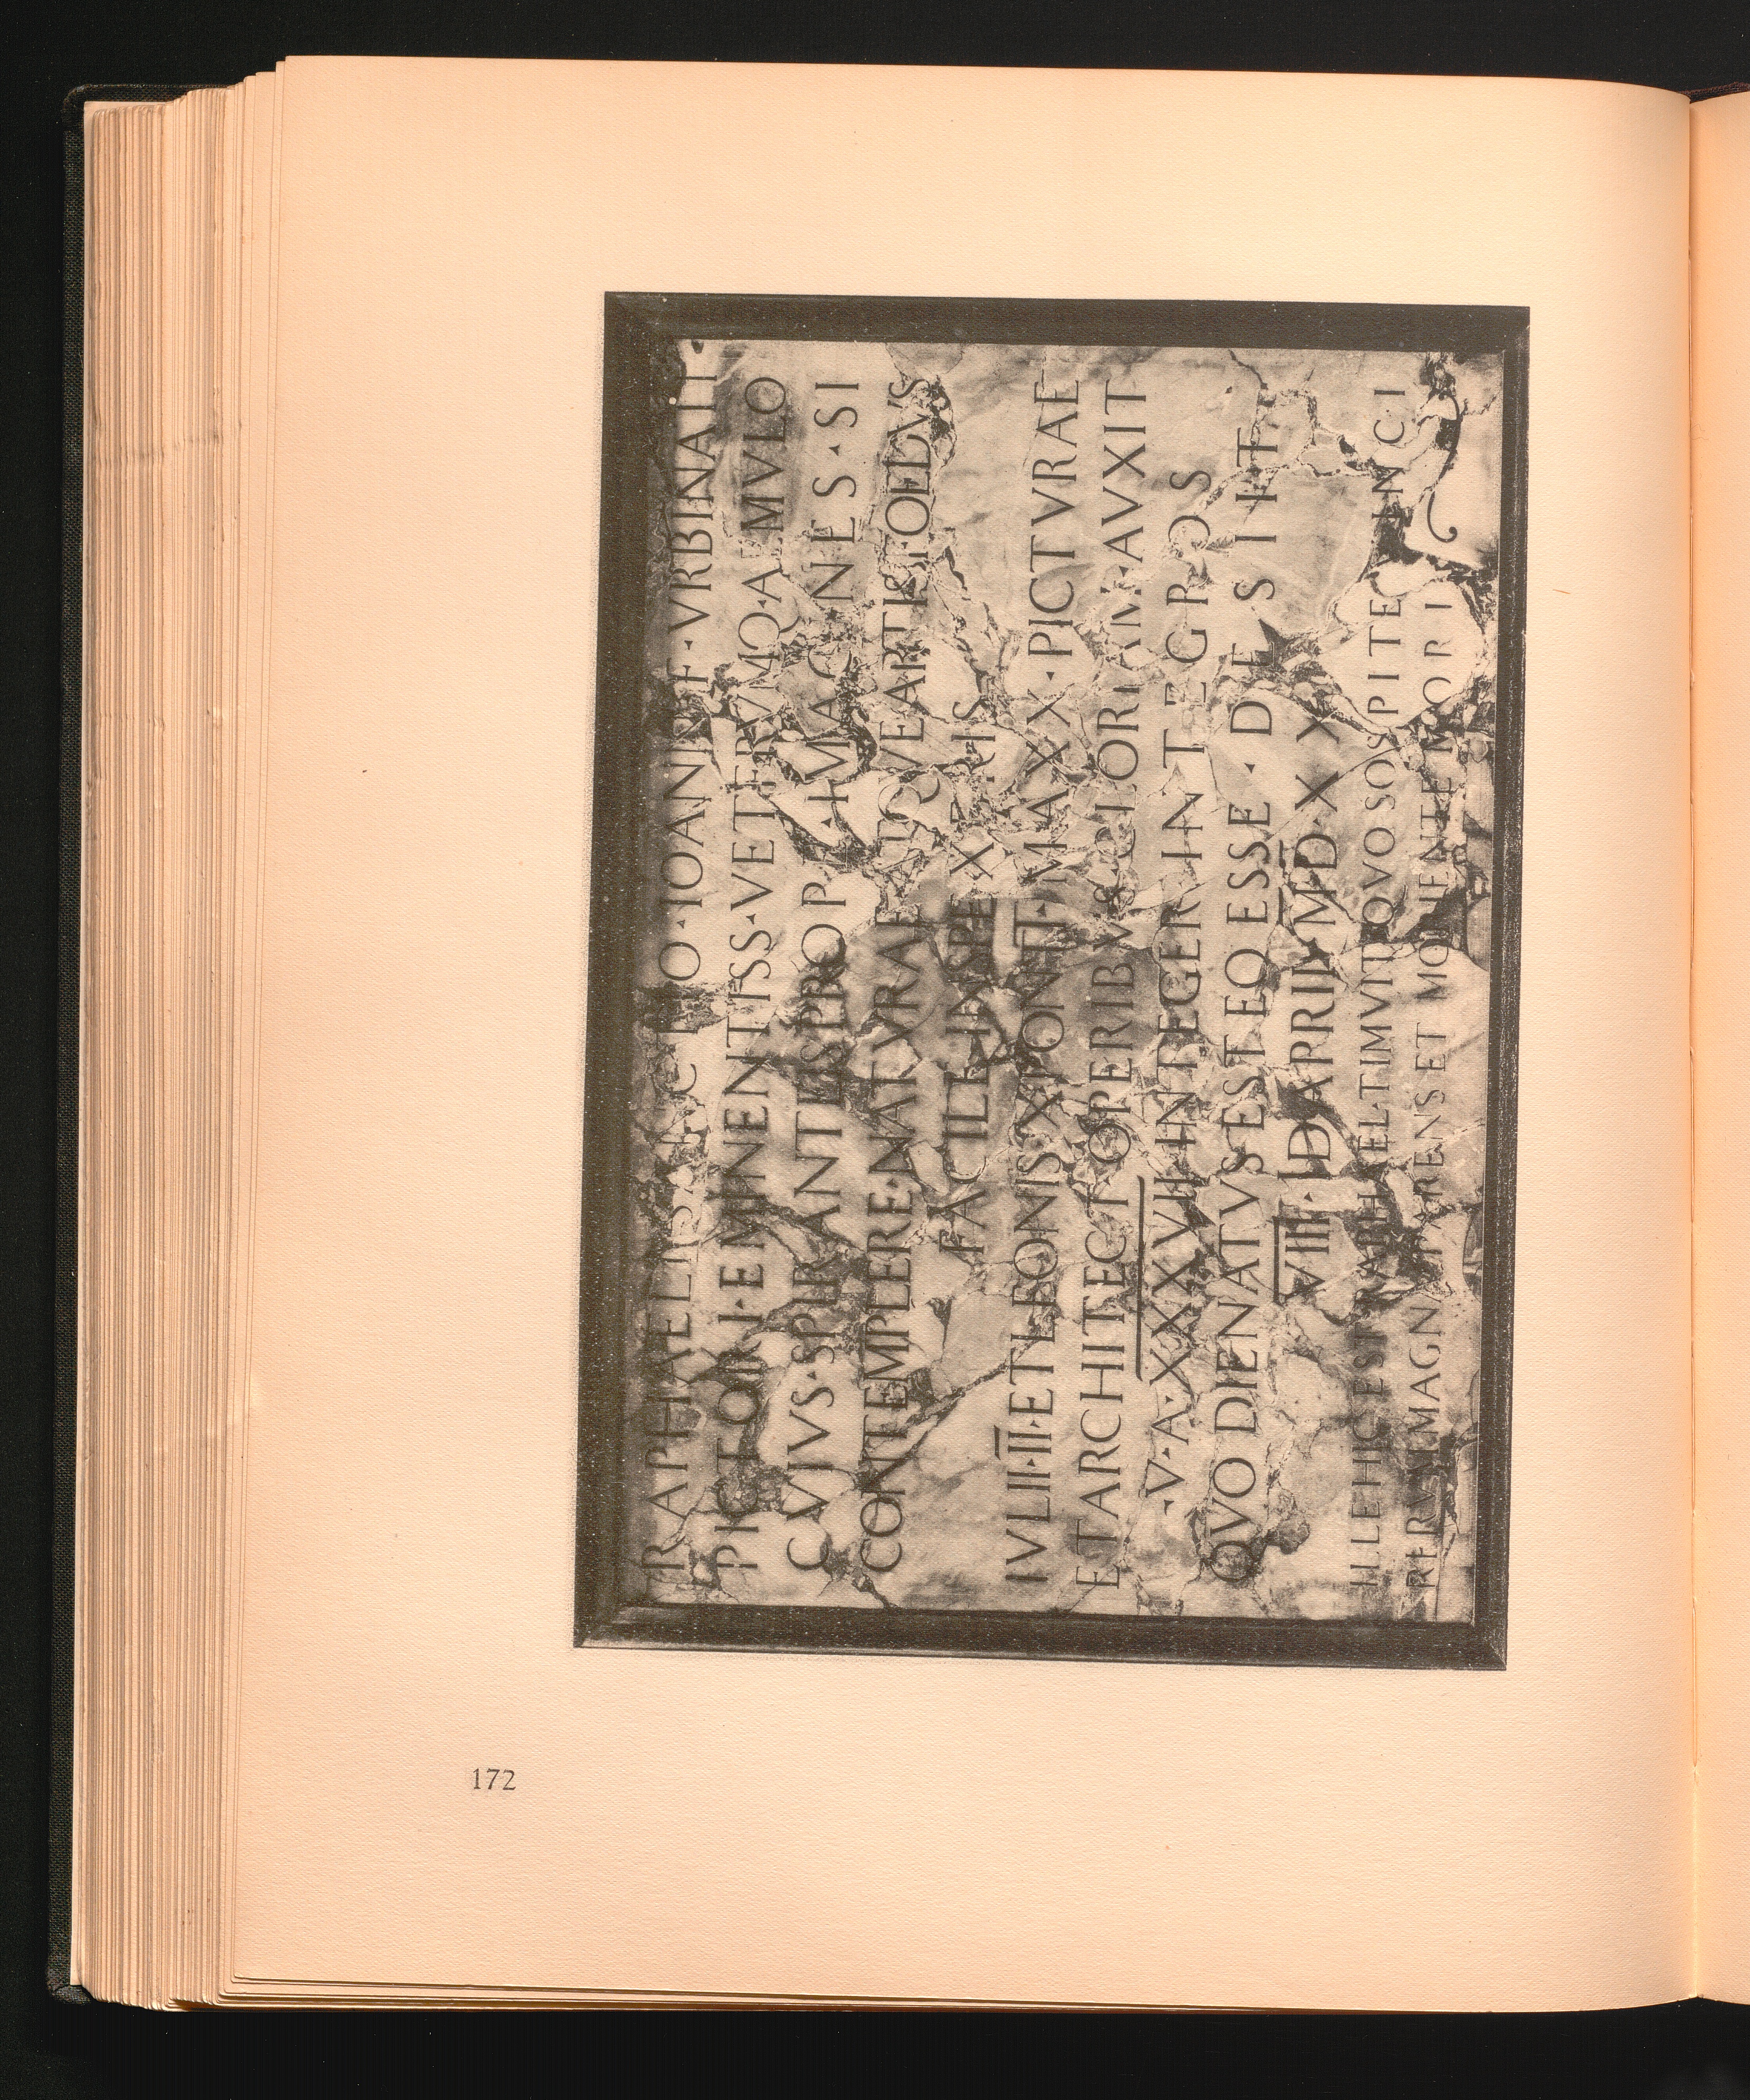 RAPHAELI·SANCTIO·IOANN·F·VRBINATI
PICTORI·EMINENTISS·VETERVMQ·AEMVLO
CVIVS·SPIRANTES·PROP·IMAGINES·SI
CONTEMPLERE·NATVRAE ATQVE ARTIS FOEDVS
FACILE INSPEXERIS
IVLII·II·ET LEONIS X PONTT·MAXX·PICTVRAE
ET ARCHITECT OPERIBVS GLORIAM AVXIT
V·A·XXXVII INTEGER INTEGROS
QVO DIE NATVS EST EO ESSE·DESIIT
VIII·ID APRIL MDXX
ILLE HIC EST RAPHAEL TIMVIT QVO SOSPITE VINCI
RERVM MAGNA PARENS ET MORIENTE MORI
172